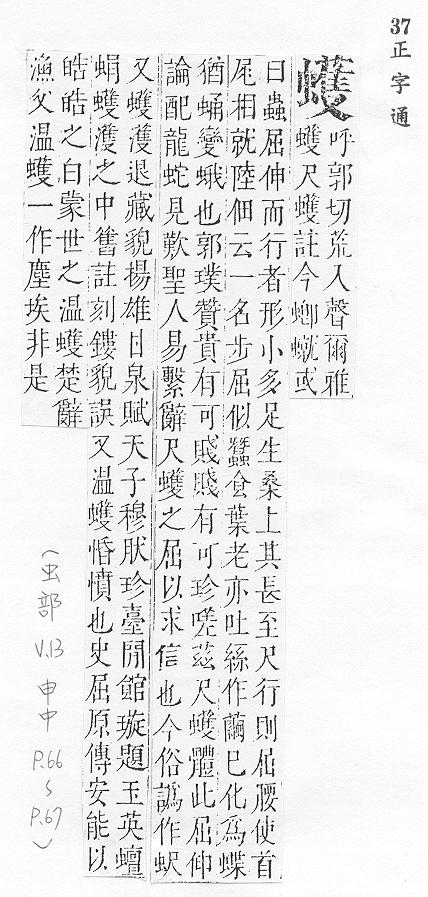 37
正字通
蠖
呼郭切荒入聲爾雅
蠖尺蠖註今蝍𧑙或
曰蟲屈伸而行者形小多足生桑上其長至尺行則屈腰使首
尾相就陸佃云一名步屈似蠶食葉老亦吐絲作繭已化為蝶
猶蛹變蛾也郭璞贊貴有可賤賤有可珍嗟茲尺蠖體此屈伸
論配龍蛇見歎聖人易繫辭尺蠖之屈以求信也今俗譌作蚇
又蠖濩退藏貌揚雄甘泉賦天子穆肰珍臺閒館璇題玉英蟺
蜎蠖濩之中舊註刻鏤貌誤又温蠖惛憒也史屈原傳安能以
皓皓之白蒙世之温蠖楚辭
漁父温蠖一作塵埃非是
(虫部 V.13 申中 P.66 ~ P.67)